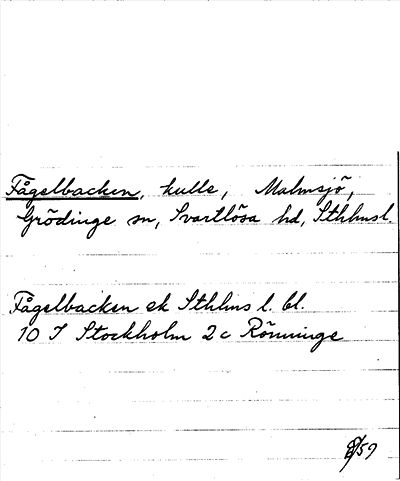 Fågelbacken, kulle, Malmsjö,
Grödinge sn, Svartlösa hd, Sthlmsl.
Fågelbacken ek Sthlms l. bl.
10 I Stockholm 2c Rönninge
/59